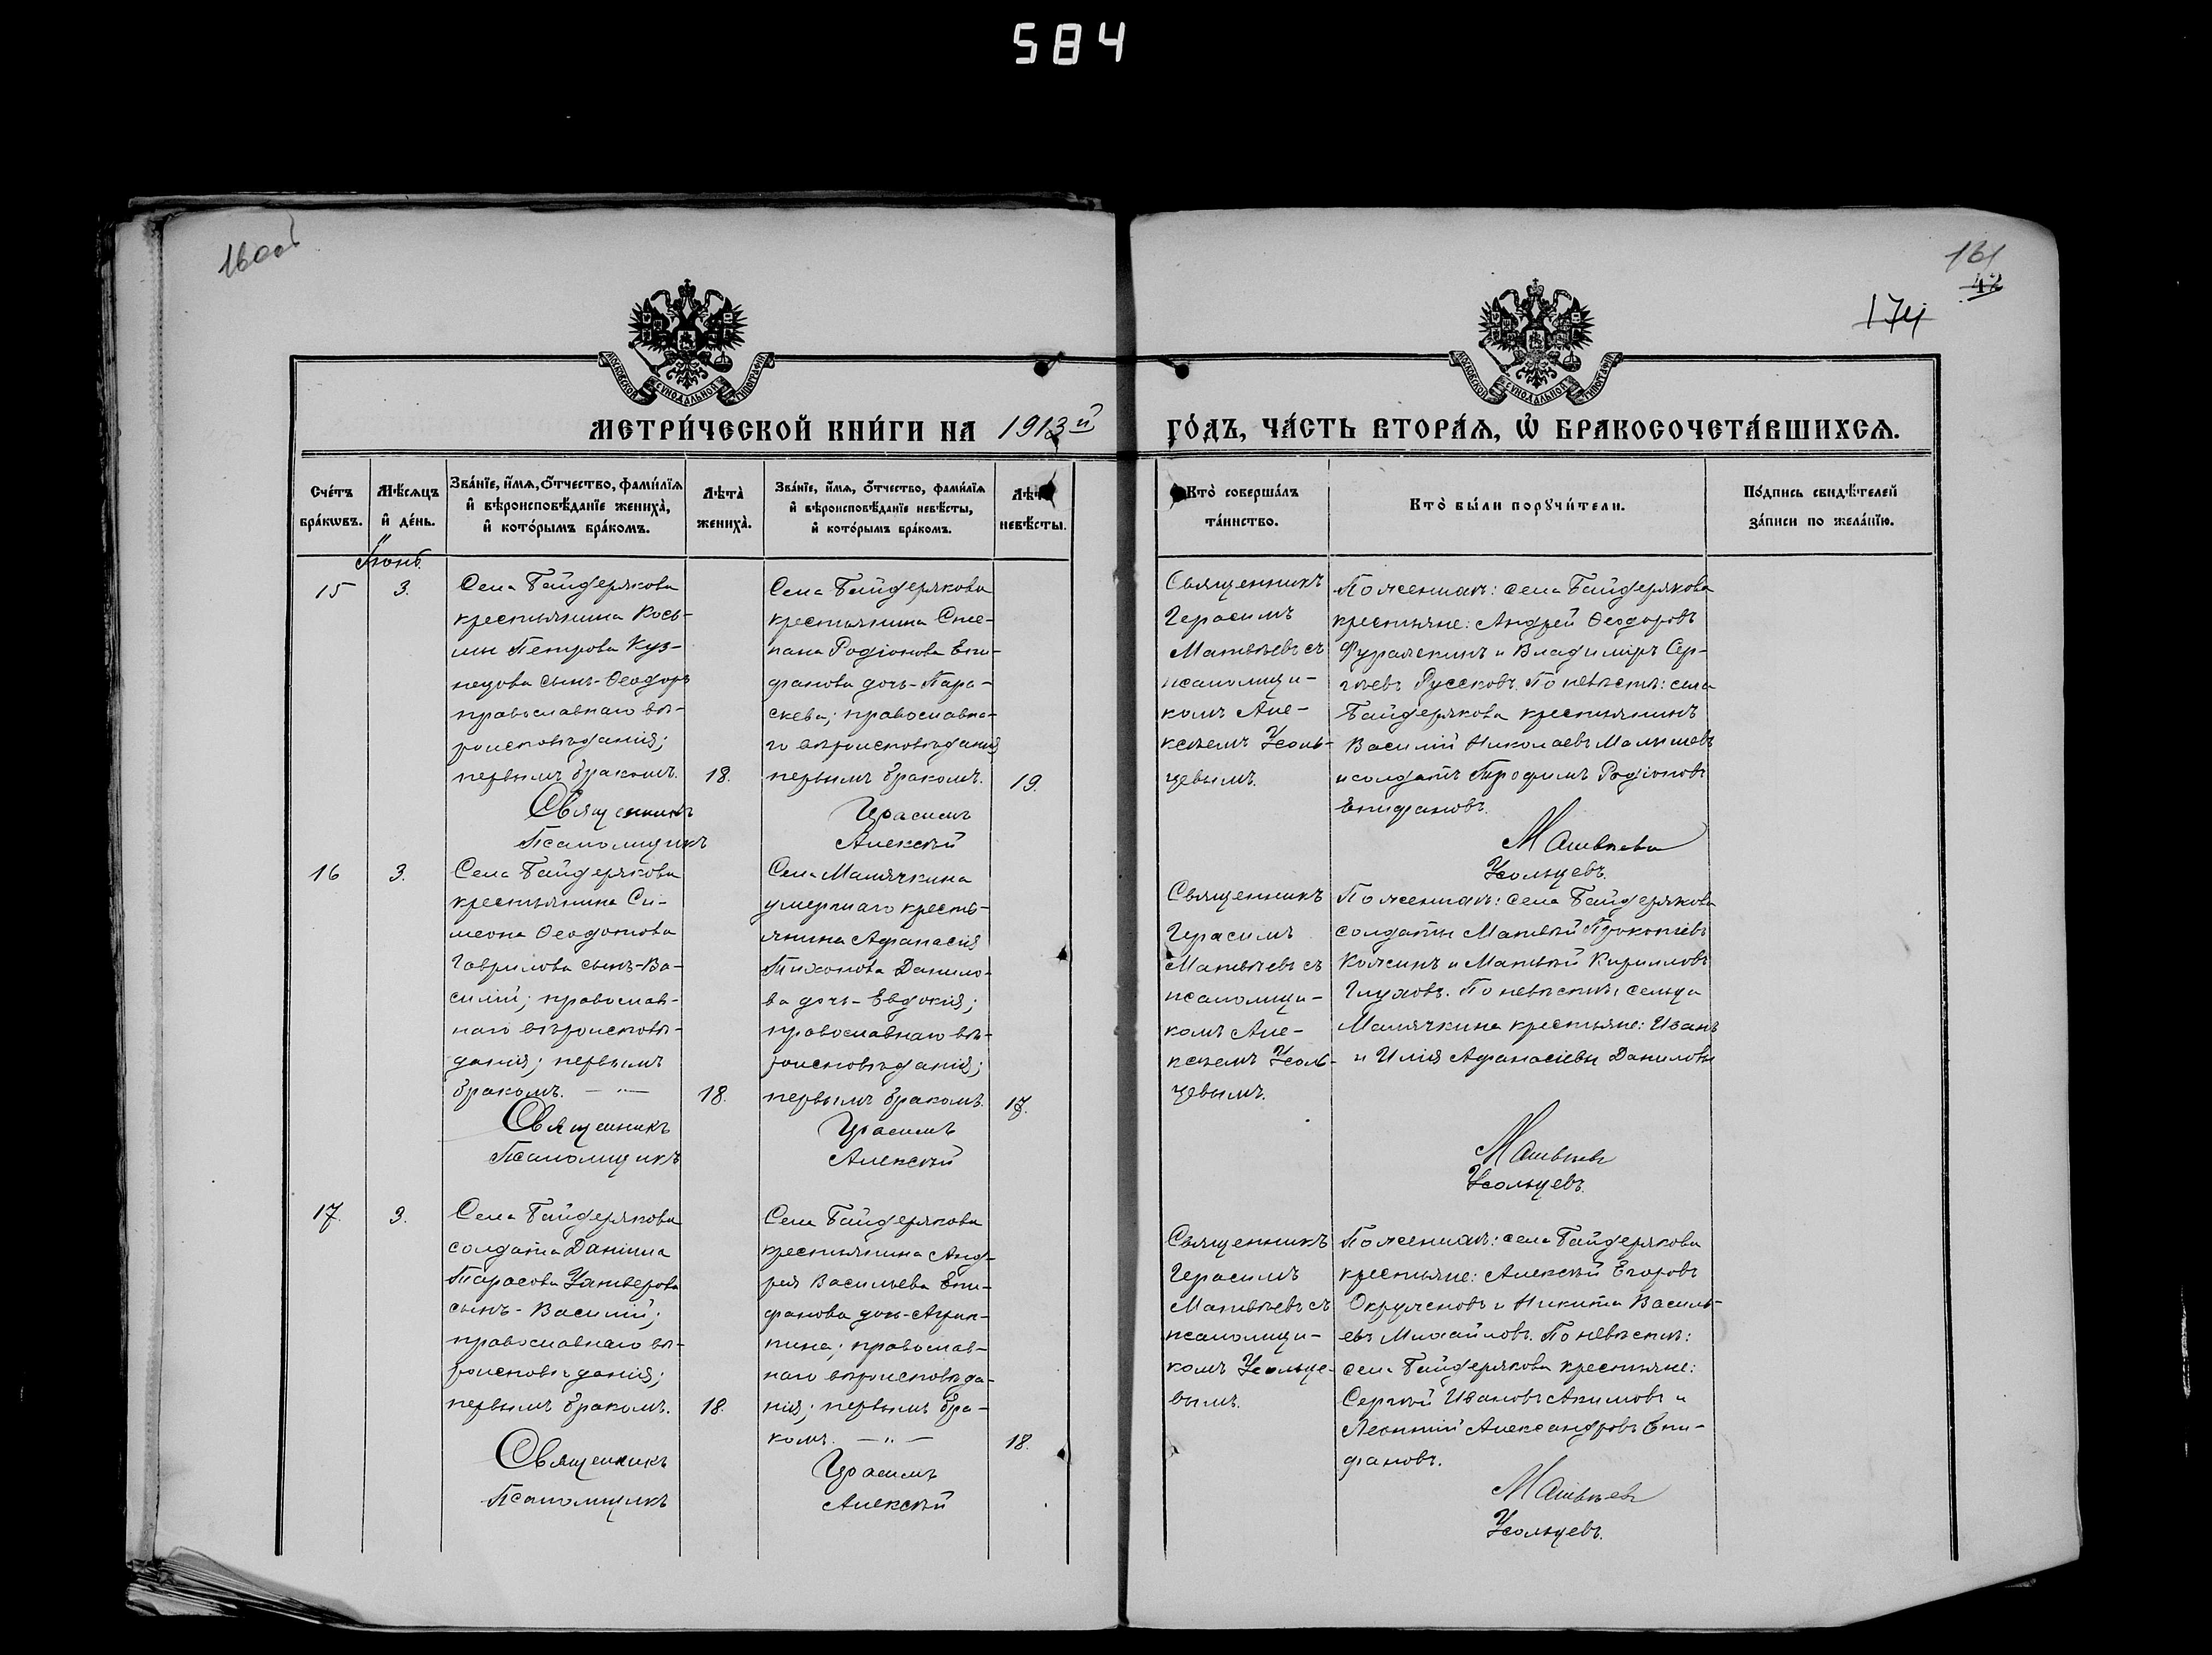 584
160об
161
42
174
МОСКОВСКОЙ СѴНОДАЛЬНОЙ ТИПОГРАФІИ
МОСКОВСКОЙ СѴНОДАЛЬНОЙ ТИПОГРАФІИ
МЕТРИ́ЧЕСКОЙ КНИ́ГИ НА 1913й ГО́ДЪ, ЧА́СТЬ ВТОРА́Ѧ, Ѡ҆ БРАКОСОЧЕТА́ВШИХСѦ.
Сче́тъ
бра́кѡвъ.
Мѣ́сѧцъ
и҆ де́нь.
Зва́нїе, и҆́мѧ, ѻ҆́тчество, фами́лїѧ
и҆ вѣроисповѣ́данїе жениха̀,
и҆ кото́рымъ бра́комъ.
Лѣта̀
жениха̀.
Зва́нїе, и҆́мѧ, ѻ҆́тчество, фами́лїѧ
и҆ вѣроисповѣ́данїе невѣ́сты,
и҆ кото́рымъ бра́комъ.
Лѣта̀
невѣ́сты.
Кто̀ соверша́лъ
та́инство.
Кто̀ бы́ли порꙋчи́тели.
По́дпись свидѣ́телей
за́писи по жела́нїю.
Іюнь.
15
3.
Села Байдерякова
крестьянина Кось-
мы Петрова Куз-
нецова сынъ-Ѳеодоръ
православнаго вѣ-
роисповѣданія;
первымъ бракомъ.
18.
Села Байдерякова
крестьянина Сте-
пана Родіонова Епи-
фанова дочь-Пара-
скева; православна-
го вѣроисповѣданія
первымъ бракомъ.
19.
Священникъ
Герасимъ
Матвѣевъ съ
псаломщи-
комъ Але-
ксѣемъ Усоль-
цевымъ.
По женихѣ: села Байдерякова
крестьяне: Андрей Ѳеодоровъ
Фуражкинъ и Владиміръ Сер-
гѣевъ Руссковъ. По невѣстѣ: села
Байдерякова крестьянинъ
Василій Николаевъ Малышевъ
и солдатъ Трофимъ Родіоновъ
Епифановъ.
Священникъ Герасимъ Матвѣевъ
Псаломщикъ Алексѣй Усольцевъ.
16
3.
Села Байдерякова
крестьянина Си-
меона Ѳеодотова
Гаврилова сынъ-Ва-
силій; православ-
наго вѣроисповѣ-
данія; первымъ
бракомъ. — " —
18.
Села Малячкина
умершаго кресть-
янина Афанасія
Тихонова Данило-
ва дочь-Евдокія;
православнаго вѣ-
роисповѣданія;
первымъ бракомъ.
17.
Священникъ
Герасимъ
Матвѣевъ съ
псаломщи-
комъ Але-
ксѣемъ Усоль-
цевымъ.
По женихѣ: села Байдерякова
солдаты Матвѣй Прокопіевъ
и Матвѣй Кирилловъ
Глуховъ. По невѣстѣ, сельца
Малячкина крестьяне: Иванъ
и Илія Афанасіевы Даниловы
Священникъ Герасимъ Матвѣевъ
Псаломщикъ Алексѣй Усольцевъ.
17.
3.
Села Байдерякова
солдата Даніила
Тарасова
сынъ-Василій;
православнаго вѣ-
роисповѣданія;
первымъ бракомъ.
18.
Села Байдерякова
крестьянина Анд-
рея Васильева Епи-
фанова дочь-Агрип-
пина; православ-
наго вѣроисповѣда-
нія; первымъ бра-
комъ. — " —
18.
Священникъ
Герасимъ
Матвѣевъ съ
псаломщи-
комъ Усольце-
вымъ.
По женихѣ: села Байдерякова
крестьяне: Алексѣй Егоровъ
Окружновъ и Никита Василь-
евъ Михайловъ. По невѣстѣ:
села Байдерякова крестьяне:
Сергѣй Ивановъ Акимовъ и
Леонтій Александровъ Епи-
фановъ.
Священникъ Герасимъ Матвѣевъ
Псаломщикъ Алексѣй Усольцевъ.